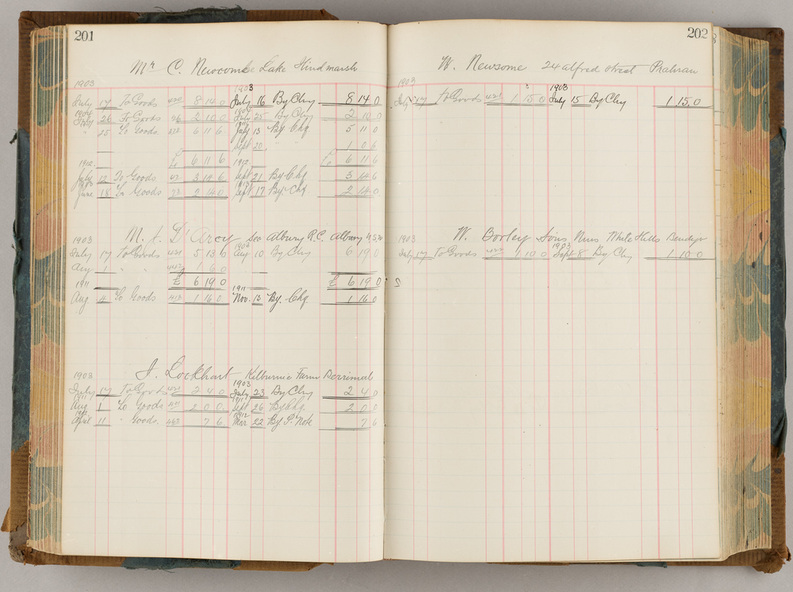 201
Mr C. Newcombe Lake Hindmarsh
1903
July 17 To Goods 8 14 0 July 16 By Chq 8 14 0
26 To Goods 2 10 0 25 By Chq 2 10 0
25 To Goods 6 11 6 July 13 By Chq 5 11 0
Sept 20 1 0 6
£ 6 11 6 £ 6 11 6
July 12 To Goods 3 14 6 Sept 21 By Chq 3 14 6
June 18 To Goods 2 14 0 Sept 17 By Chq 2 14 0
1903 M. J. D'Arcy for Albury R.C. Albury
July 17 To Goods 5 13 6 Aug 10 By Chq 6 19 0
Aug 1
£ 6 19 0 £ 6 19 0
1911
Aug 4 To Goods 1 16 0 Nov. 13 By Chq 1 16 0
1903 J. Lockhart Kilburnie Farm Derrimut
July 17 To Goods 2 4 0 July 23 By Chq 2 4 0
Aug 1 To Goods 2 0 0 Sept 26 By Chq 2 0 0
April 11 " Goods 7 6 Mar 22 By P. Note 7 6
202
W. Newsome 24 Alfred Street Prahran
1903
July 17 To Goods 1 15 0 July 15 By Chq 1 15 0
1903 W. Borley White Hills Bendigo
July 17 To Goods 1 10 0 Sept 8 By Chq 1 10 0